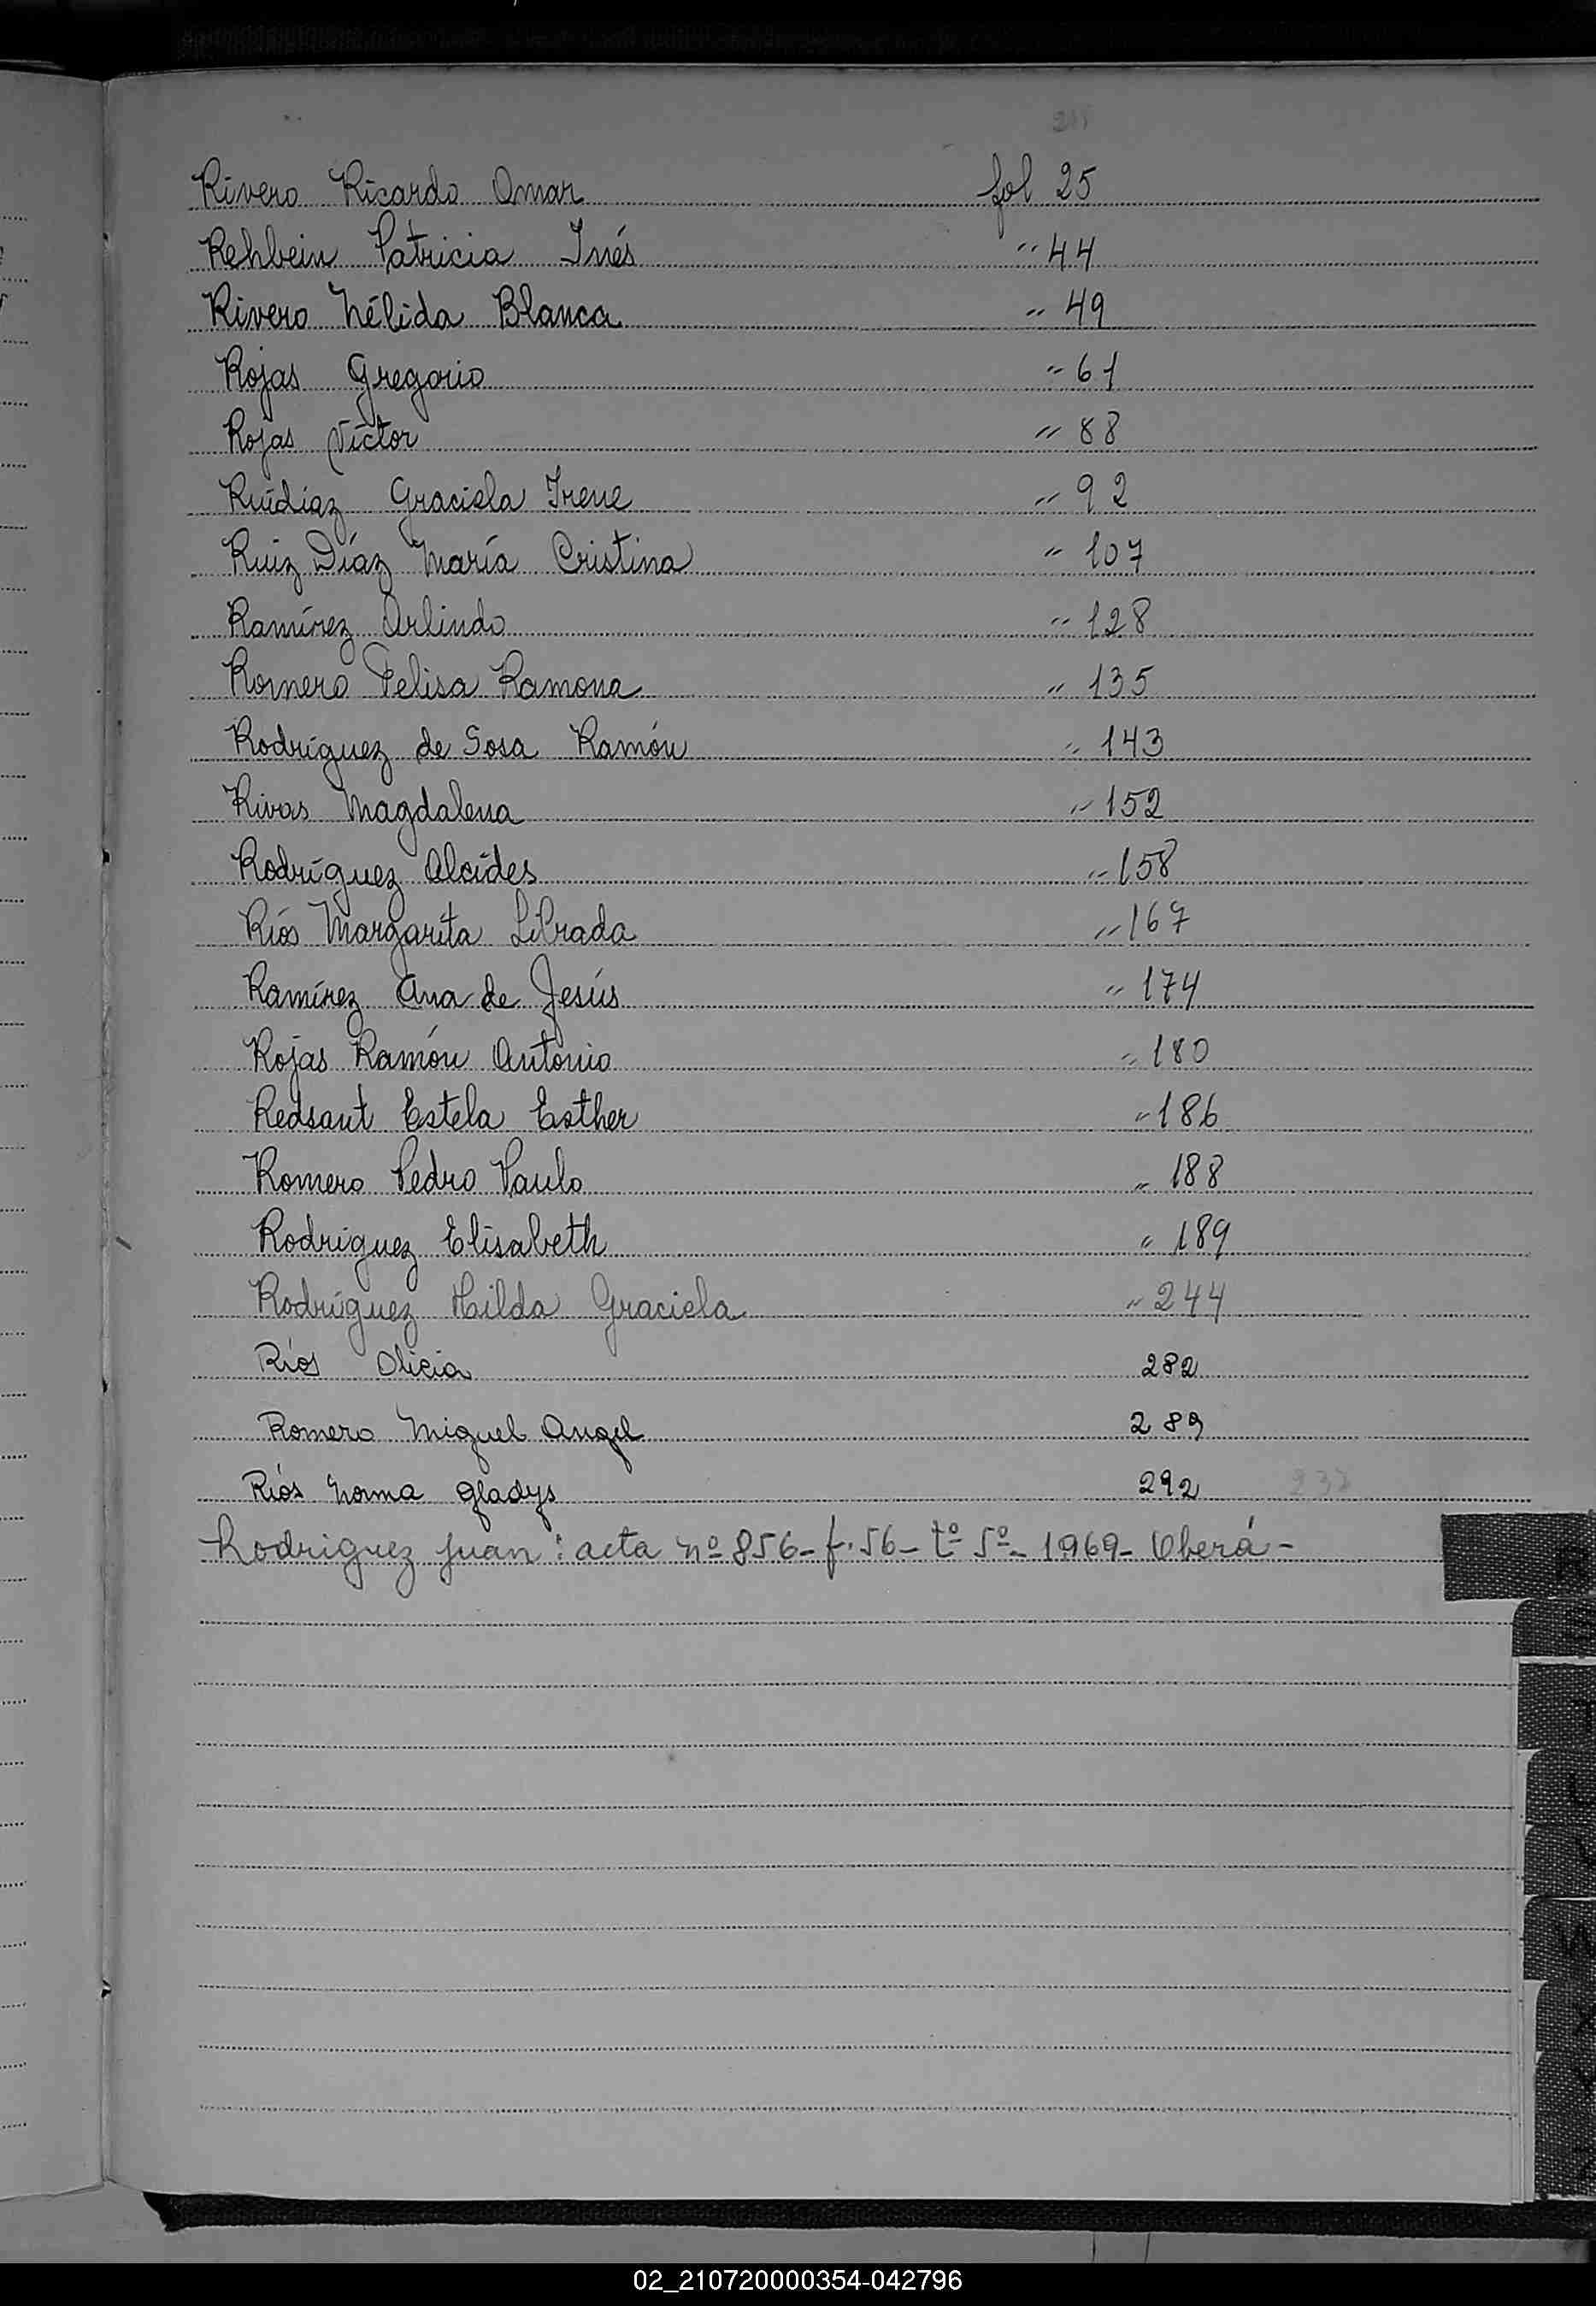 Rivero Ricardo Omar fol 25
Rehbein Patricia Inés " 44
Rivero Nélida Blanca " 49
Rojas Gregorio " 61
Rojas Víctor " 88
Ruídiaz Graciela Irene " 92
Ruiz Díaz María Cristina " 107
Ramírez Arlindo " 128
Romero Felisa Ramona " 135
Rodríguez de Sosa Ramón " 143
Rivas Magdalena " 152
Rodríguez Alcídes " 158
Ríos Margarita Librada " 167
Ramírez Ana de Jesús " 174
Rojas Ramón Antonio " 180
Redsaut Estela Esther " 186
Romero Pedro Paulo " 188
Rodríguez Elisabeth " 189
Rodríguez Hilda Graciela " 244
Ríos Alicia 282
Romero Miguel Angel 289
Ríos Norma Gladys 292 237
Rodriguez Juan: acta nº 856 - f. 56 - tº 5º - 1969 - Oberá -
R
S
T
U
V
W
X
Y
Z
02_210720000354-042796